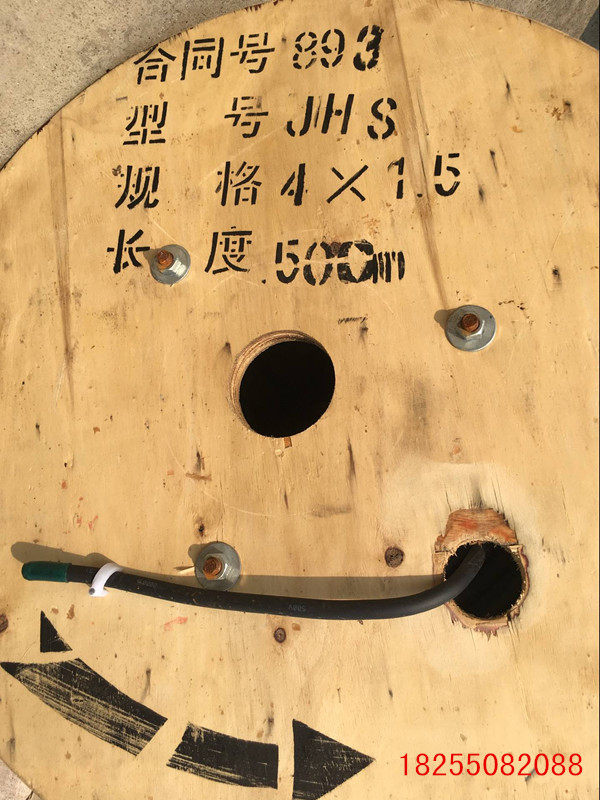 合同号 893
型 号 JHS
规 格 4×1.5
长 度 500m
500V
18255082088